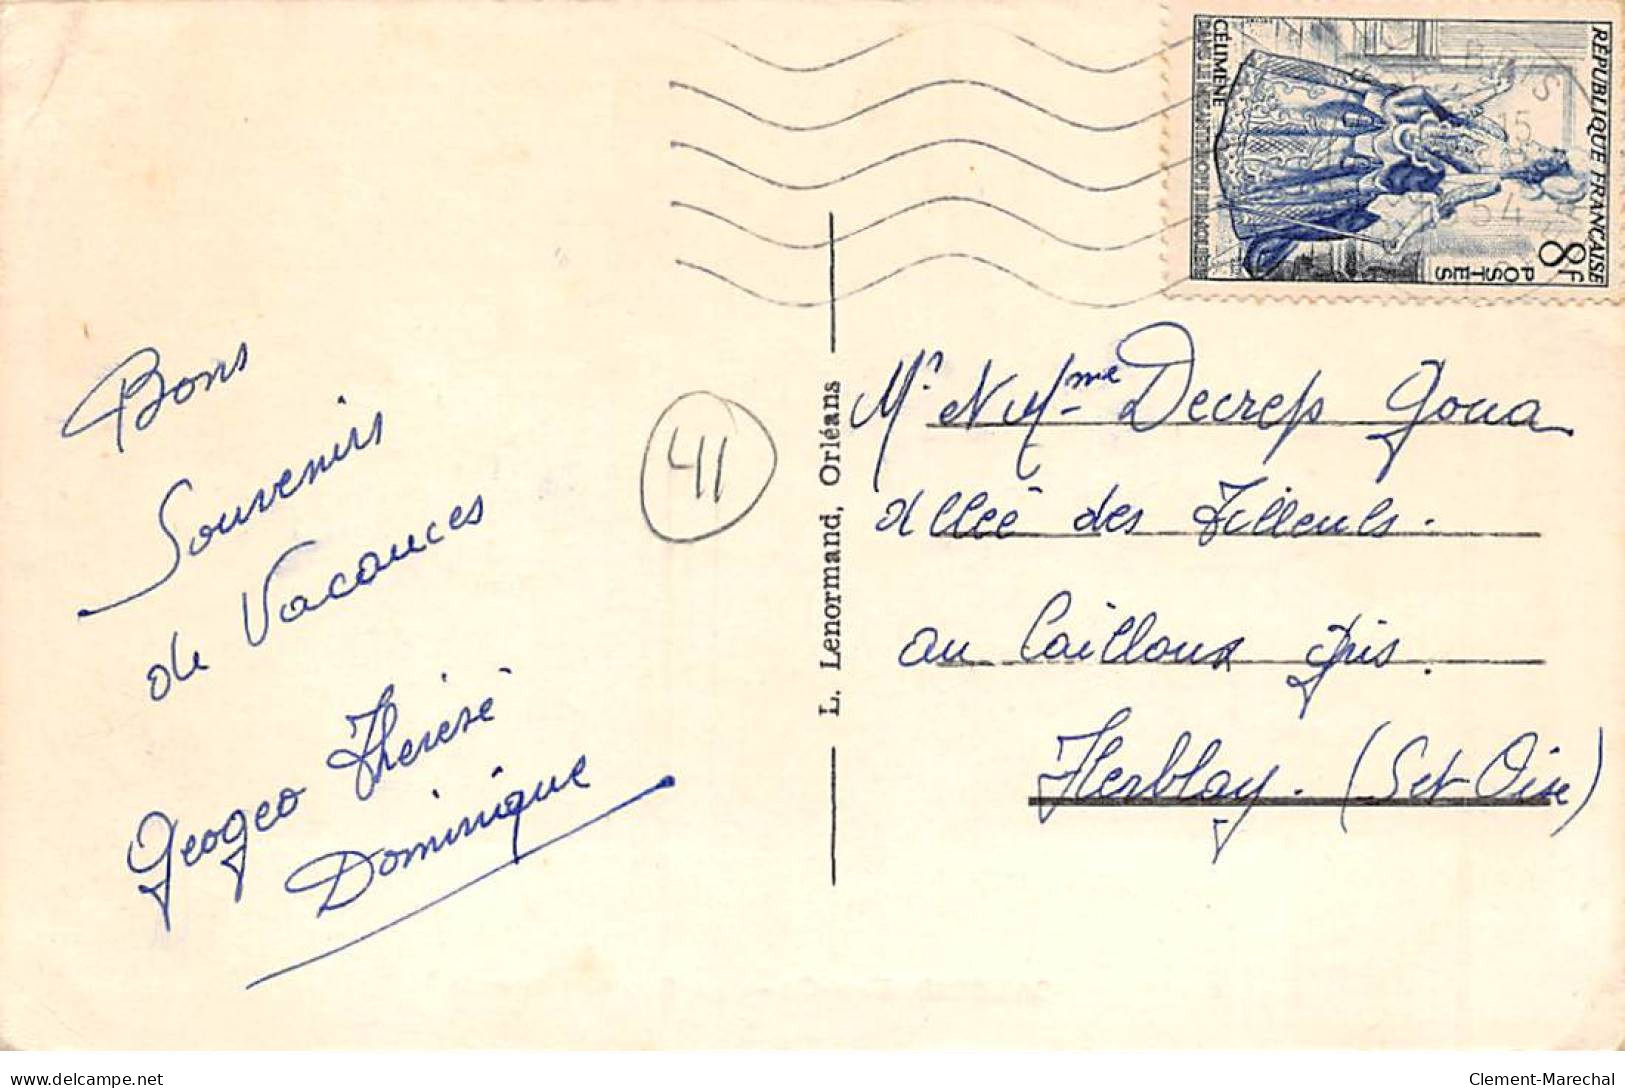 Bons
Souvenirs
de Vacances
Geogeo Therese
Dominique
41
L. Lenormand, Orléans
RÉPUBLIQUE FRANÇAISE
8F
POSTES
CÉLIMÈNE
DANS LE MISANTHROPE DE MOLIÈRE
15
54
Mr et Mme Decreps
Allée des Tilleuls.
au Cailloux gris.
Herblay. (Set-Oise)
delcampe.net
Clement-Marechal